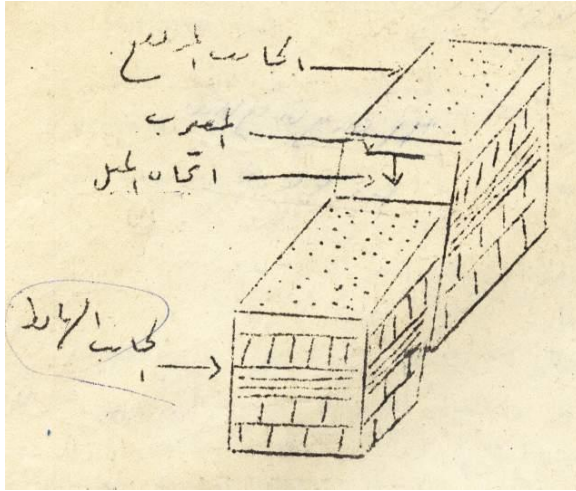 الجانب المرتفع
المضرب
اتجاه الميل
الجانب الهابط